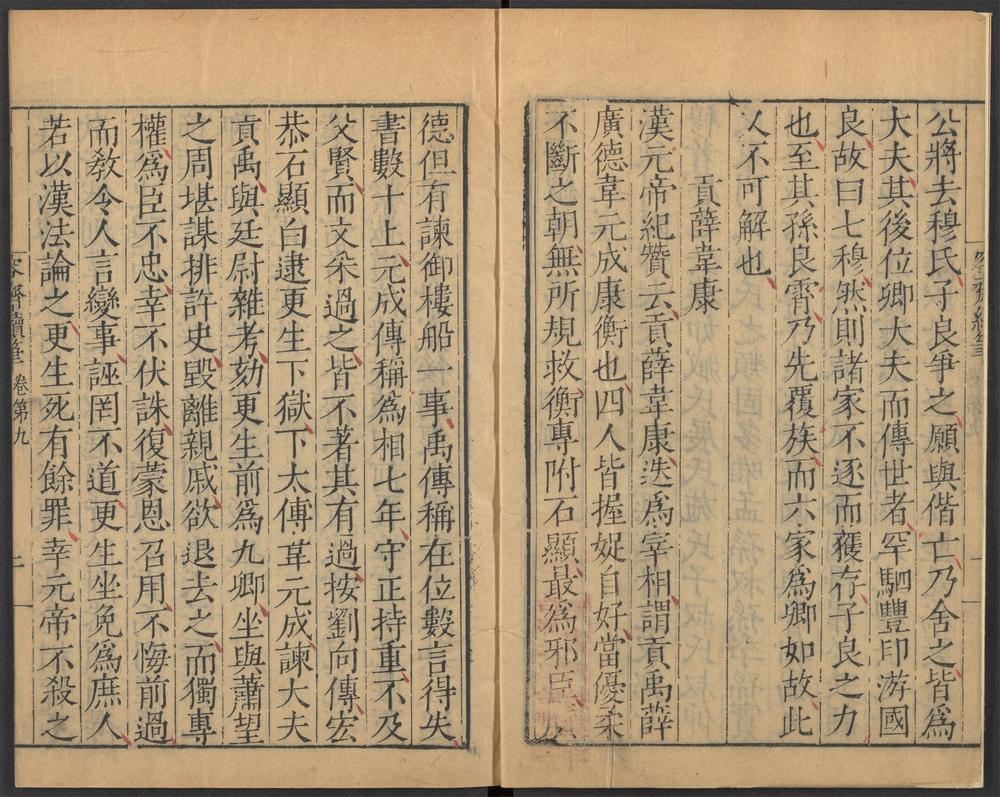 公將去穆氏子良爭之願與偕亡乃舍之皆爲
大夫其後位卿大夫而傳世者罕駟豐印游國
良故曰七穆然則諸家不逐而獲存子良之力
也至其孫良霄乃先覆族而六家爲卿如故此
又不可解也
貢薛韋康
漢元帝紀贊云貢薛韋康迭爲宰相謂貢禹薛
廣德韋元成康衡也四人皆握娖自好當優柔
不斷之朝無所規救衡專附石顯最爲邪臣
德但有諫御樓船一事禹傳稱在位數言得失
書數十上元成傳稱爲相七年守正持重不及
父賢而文采過之皆不著其有過按劉向傳宏
恭石顯白逮更生下獄下太傅韋元成諫大夫
貢禹與廷尉雜考劾更生前爲九卿坐與蕭望
之周堪謀排許史毀離親戚欲退去之而獨專
權爲臣不忠幸不伏誅復蒙恩召用不悔前過
而敎令人言變事誣罔不道更生坐免爲庶人
若以漢法論之更生死有餘罪幸元帝不殺之
容齋續筆 卷第九